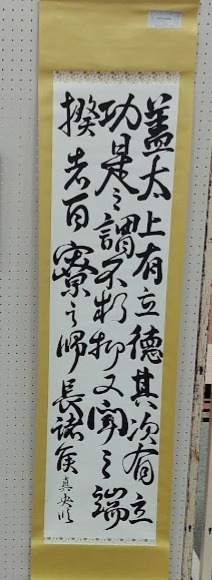 蓋太上有立德其次有立
功是之謂不朽抑又聞之端
揆者百寮之師長諸侯
真央臨